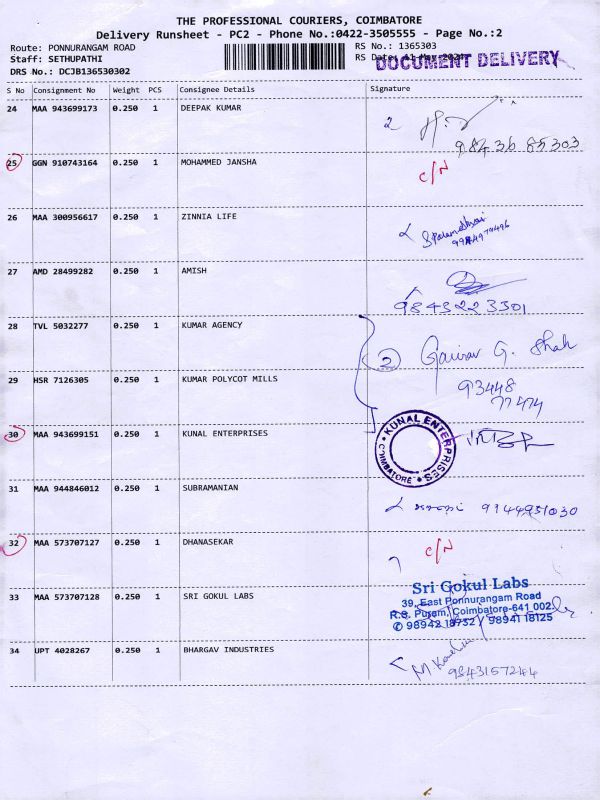 THE PROFESSIONAL COURIERS, COIMBATORE
Delivery Runsheet - PC2 - Phone No.:0422-3505555 - Page No.:2
Route: PONNURANGAM ROAD
Staff: SETHUPATHI
DRS No.: DCJB136530302
RS No.: 1365303
RS Date:
DOCUMENT DELIVERY
S No Consignment No Weight PCS Consignee Details Signature
24 MAA 943699173 0.250 1 DEEPAK KUMAR
98436 85303
25 GGN 910743164 0.250 1 MOHAMMED JANSHA C/N
26 MAA 300956617 0.250 1 ZINNIA LIFE
27 AMD 28499282 0.250 1 AMISH
9843223301
28 TVL 5032277 0.250 1 KUMAR AGENCY
2 Gaurav G. Shah
29 HSR 7126305 0.250 1 KUMAR POLYCOT MILLS
93448
77474
30 MAA 943699151 0.250 1 KUNAL ENTERPRISES
KUNAL ENTERPRISES
COIMBATORE
31 MAA 944846012 0.250 1 SUBRAMANIAN
9144951030
32 MAA 573707127 0.250 1 DHANASEKAR C/N
33 MAA 573707128 0.250 1 SRI GOKUL LABS
Sri Gokul Labs
39, East Ponnurangam Road
R.S. Puram, Coimbatore-641 002.
✆ 98942 18732 / 98941 18125
34 UPT 4028267 0.250 1 BHARGAV INDUSTRIES
9843157244